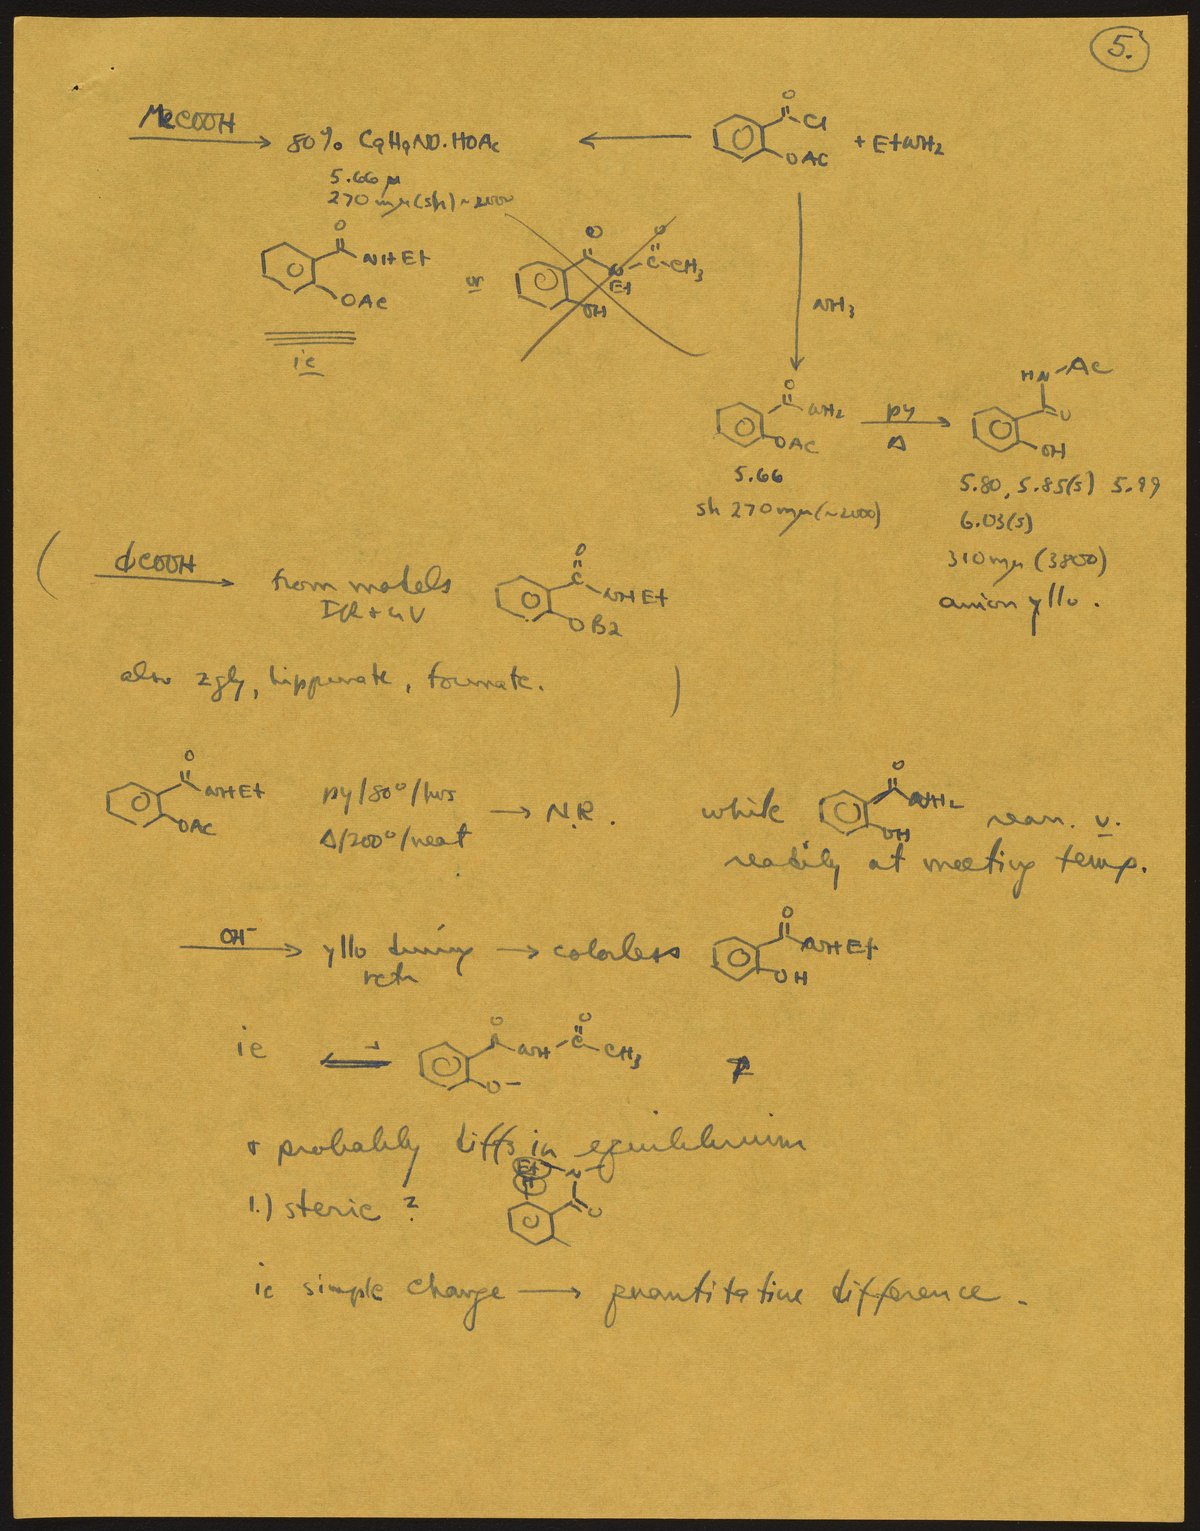 5.
MeCOOH
80% C9H9NO.HOAc
5.66 μ
270 mμ (sh) ~2000
O
Cl
OAc
+ EtNH2
O
NHEt
OAc
ie
or
O
N
Et
O
C-CH3
OH
NH3
O
NH2
OAc
5.66
sh 270 mμ (~2000)
py
Δ
HN-Ac
O
OH
5.80, 5.85(s) 5.99
6.03(s)
310 mμ (3800)
anion yllo.
( φCOOH
from models
IR + UV
O
C
NHEt
OBz
also zgly, hippurate, formate. )
O
NHEt
OAc
py/80°/hrs
Δ/200°/neat
→ N.R.
while
O
NH2
OH
rearr. v.
readily at melting temp.
OH-
yllo during → colorless
rctn
O
NHEt
OH
ie
O
NH-C-CH3
O
O-
+ probably diffs in equilibrium
1.) steric ?
Et
H
N
O
ie simple change → quantitative difference.